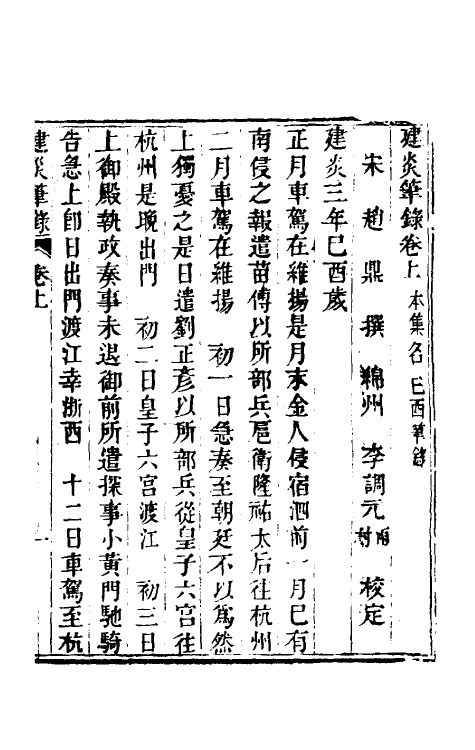 建炎筆錄卷上 本集名己酉筆錄
宋 趙鼎 撰 綿州 李調元 雨村 校定
建炎三年己酉歲
正月車駕在維揚是月末金人侵宿泗前一月已有
南侵之報遣苗傅以所部兵扈衛隆祐太后往杭州
二月車駕在維揚 初一日急奏至朝廷不以爲然
上獨憂之是日遣劉正彥以所部兵從皇子六宮往
杭州是晚出門 初二日皇子六宮渡江 初三日
上御殿執政奏事未退御前所遣探事小黃門馳騎
告急上卽日出門渡江幸浙西 十二日車駕至杭
建炎筆錄 卷上 一